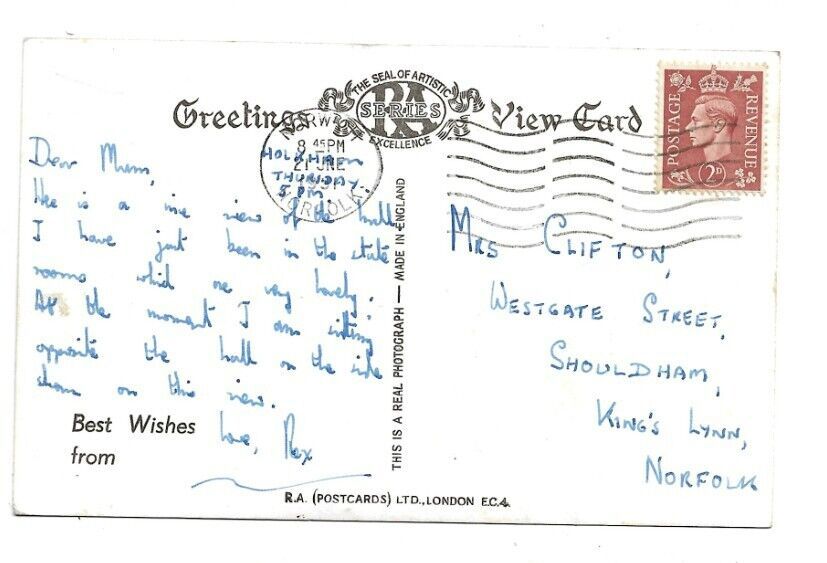 THE SEAL OF ARTISTIC
RA
SERIES
EXCELLENCE
Greetings View Card
POSTAGE
REVENUE
2D
8 45PM
21 JNE
NORFOLK
HOLKHAM
THURSDAY.
5 PM.
Dear Mum,
Here is a nice view of the hall
I have just been in the state
rooms which are very lovely.
At the moment I am sitting
opposite the hall on the side
shown on this view.
Love, Rex
Best Wishes
from
THIS IS A REAL PHOTOGRAPH — MADE IN ENGLAND
MRS CLIFTON,
WESTGATE STREET,
SHOULDHAM,
KING'S LYNN,
NORFOLK
R.A. (POSTCARDS) LTD., LONDON E.C.4.